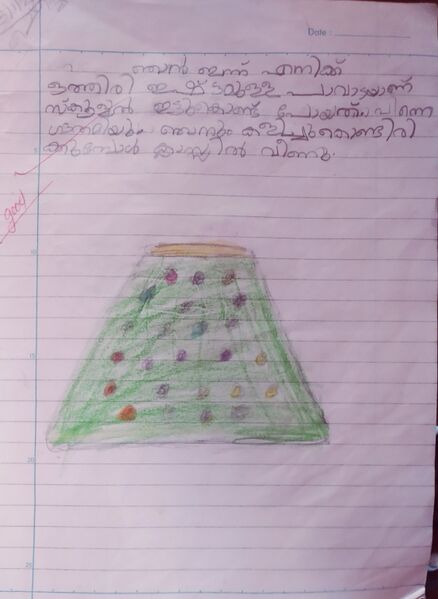 Date :
ഞാൻ ഇന്ന് എനിക്ക്
ഒത്തിരി ഇഷ്ടമുള്ള പാവാടയാണ്
സ്കൂളിൽ ഇട്ടുകൊണ്ട് പോയത്. പിന്നെ
ഞാനും കളിച്ചുകൊണ്ടിരി
ക്കുമ്പോൾ ക്ലാസ്സിൽ വീണു.
good
10
15
20
25